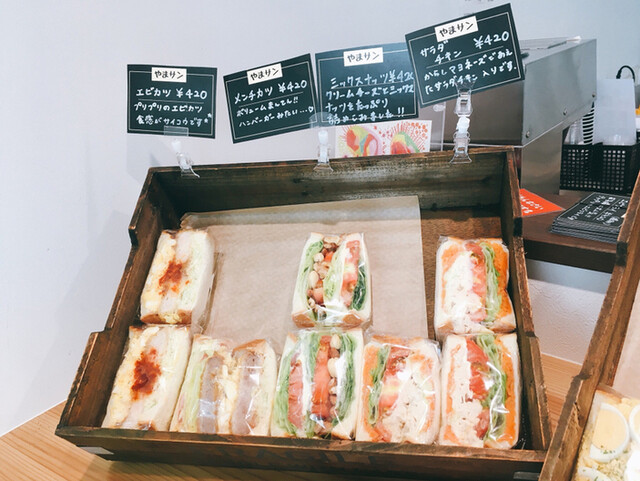 やまサン
エビカツ ¥420
プリプリのエビカツ
食感がサイコウです
やまサン
メンチカツ ¥420
ボリュームまんてん!!
ハンバーガーみたい…
やまサン
ミックスナッツ ¥420
クリームチーズとミックス
ナッツをたっぷり
やまサン
サラダ
チキン ¥420
からしマヨネーズであえ
たサラダチキン入りです。